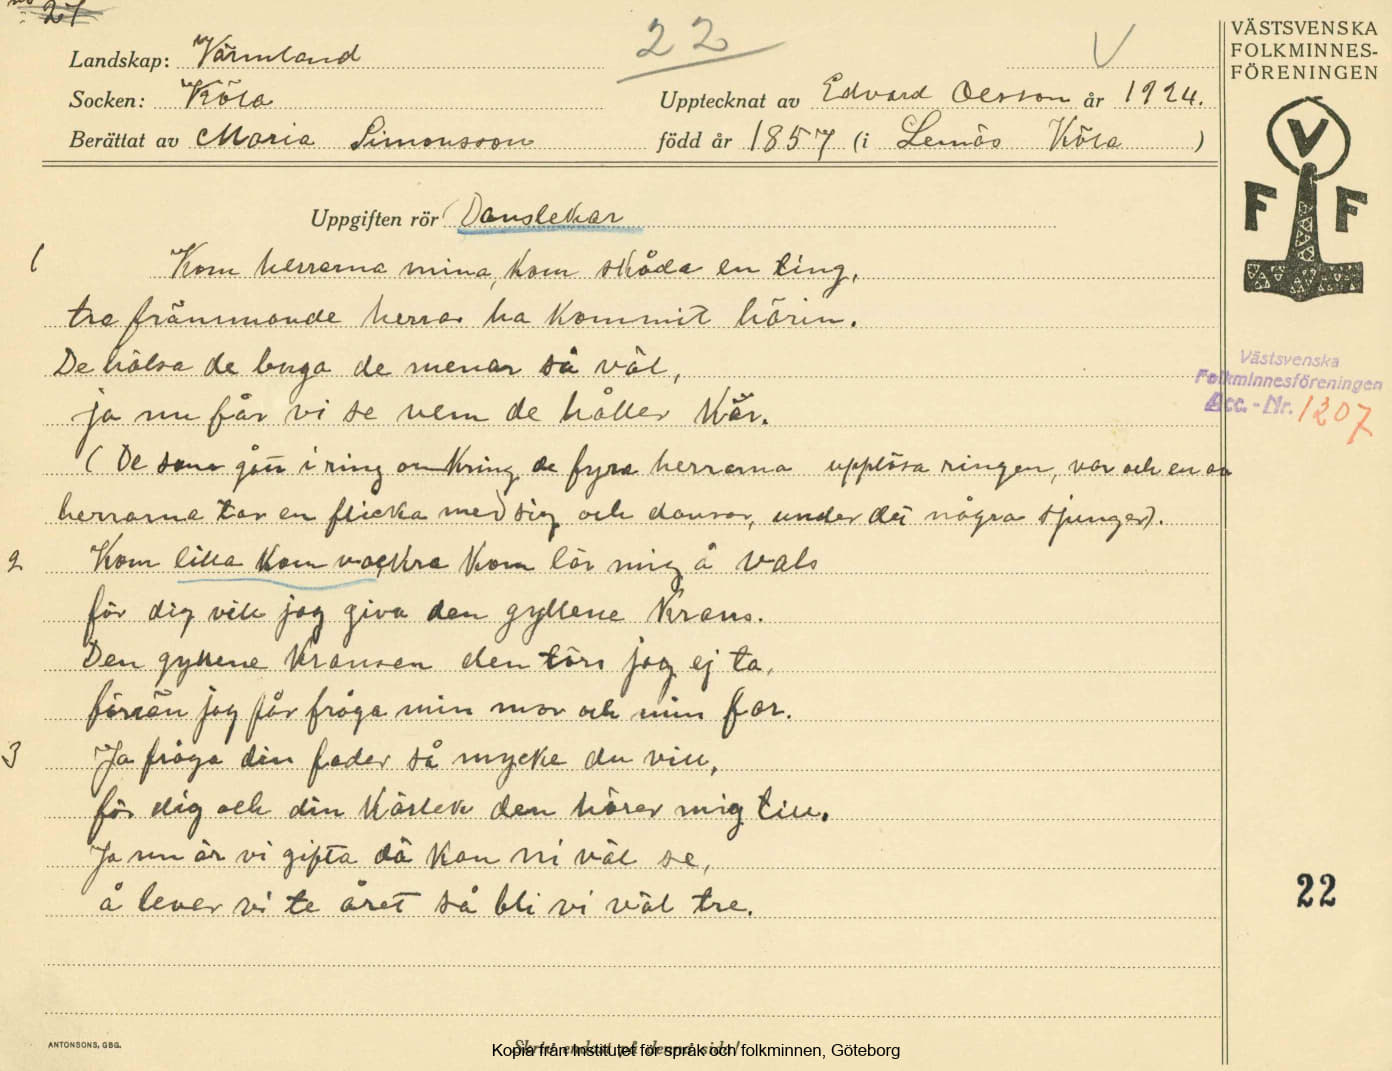 27
22
V
VÄSTSVENSKA
FOLKMINNES-
FÖRENINGEN
Landskap: Värmland
Socken: Köla
Upptecknat av Edvard Olsson år 1924.
Berättat av Maria Simonsson
född år 1857 (i Lenäs Köla )
V
F F
Uppgiften rör Danslekar
1 Kom herrarna mina, kom skåda en ting,
tre främmande herrar ha kommit härin.
De hälsa de buga de menar så väl,
ja nu får vi se vem de håller kär.
( De som gått i ring omkring de fyra herrarna upplösa ringen, var och en av
herrarna tar en flicka med sig och dansar, under det några sjunger).
2 Kom lilla kom vackra kom lär mig å vals
för dig vill jag giva den gyllene krans.
Den gyllene kransen den törs jag ej ta,
förrän jag får fråga min mor och min far.
3 Ja fråga din fader så mycke du vill,
för dig och din kärlek den hörer mig till.
Ja nu är vi gifta då kan ni väl se,
å lever vi te året så bli vi väl tre.
Västsvenska
Folkminnesföreningen
Acc. - Nr. 1207
22
ANTONSONS, GBG.
Skriv endast på denna sida!
Kopia från Institutet för språk och folkminnen, Göteborg